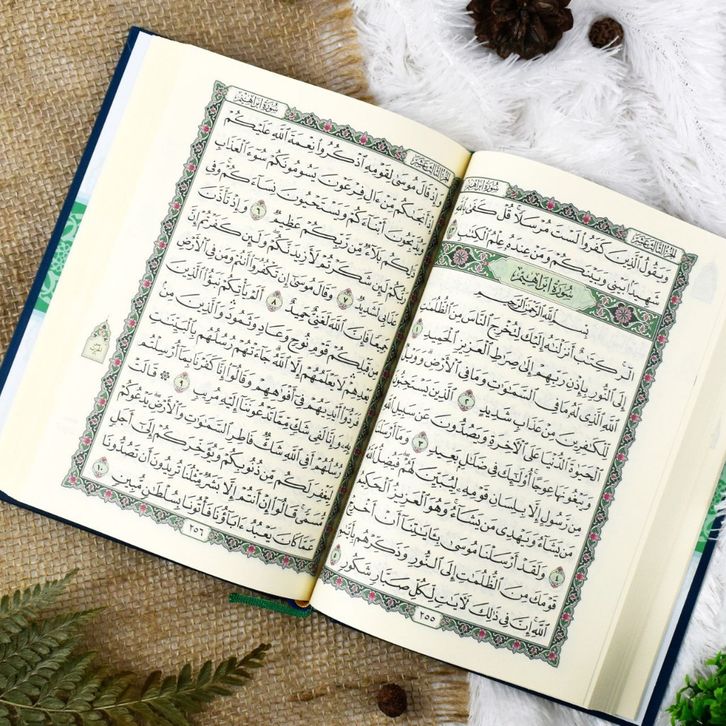 سُورَةُ إِبْرَاهِيمَ
الجُزْءُ الثَّالِثَ عَشَرَ
وَيَقُولُ ٱلَّذِينَ كَفَرُواْ لَسۡتَ مُرۡسَلٗاۚ قُلۡ كَفَىٰ بِٱللَّهِ
شَهِيدَۢا بَيۡنِي وَبَيۡنَكُمۡ وَمَنۡ عِندَهُۥ عِلۡمُ ٱلۡكِتَٰبِ
سُورَةُ إِبْرَاهِيمَ
بِسۡمِ ٱللَّهِ ٱلرَّحۡمَٰنِ ٱلرَّحِيمِ
الٓرۚ كِتَٰبٌ أَنزَلۡنَٰهُ إِلَيۡكَ لِتُخۡرِجَ ٱلنَّاسَ مِنَ ٱلظُّلُمَٰتِ
إِلَى ٱلنُّورِ بِإِذۡنِ رَبِّهِمۡ إِلَىٰ صِرَٰطِ ٱلۡعَزِيزِ ٱلۡحَمِيدِ ١
ٱللَّهِ ٱلَّذِي لَهُۥ مَا فِي ٱلسَّمَٰوَٰتِ وَمَا فِي ٱلۡأَرۡضِۗ وَوَيۡلٞ
لِّلۡكَٰفِرِينَ مِنۡ عَذَابٖ شَدِيدٍ ٢ ٱلَّذِينَ يَسۡتَحِبُّونَ
ٱلۡحَيَوٰةَ ٱلدُّنۡيَا عَلَى ٱلۡأٓخِرَةِ وَيَصُدُّونَ عَن سَبِيلِ ٱللَّهِ
وَيَبۡغُونَهَا عِوَجًاۚ أُوْلَٰٓئِكَ فِي ضَلَٰلِۭ بَعِيدٖ ٣ وَمَآ أَرۡسَلۡنَا
مِن رَّسُولٍ إِلَّا بِلِسَانِ قَوۡمِهِۦ لِيُبَيِّنَ لَهُمۡۖ فَيُضِلُّ ٱللَّهُ
مَن يَشَآءُ وَيَهۡدِي مَن يَشَآءُۚ وَهُوَ ٱلۡعَزِيزُ ٱلۡحَكِيمُ
٤ وَلَقَدۡ أَرۡسَلۡنَا مُوسَىٰ بِـَٔايَٰتِنَآ أَنۡ أَخۡرِجۡ
قَوۡمَكَ مِنَ ٱلظُّلُمَٰتِ إِلَى ٱلنُّورِ وَذَكِّرۡهُم بِأَيَّىٰمِ
ٱللَّهِۚ إِنَّ فِي ذَٰلِكَ لَأٓيَٰتٖ لِّكُلِّ صَبَّارٖ شَكُورٖ
٢٥٥
الجُزْءُ الثَّالِثَ عَشَرَ
سُورَةُ إِبْرَاهِيمَ
وَإِذۡ قَالَ مُوسَىٰ لِقَوۡمِهِ ٱذۡكُرُواْ نِعۡمَةَ ٱللَّهِ عَلَيۡكُمۡ
إِذۡ أَنجَىٰكُم مِّنۡ ءَالِ فِرۡعَوۡنَ يَسُومُونَكُمۡ سُوٓءَ ٱلۡعَذَابِ
وَيُذَبِّحُونَ أَبۡنَآءَكُمۡ وَيَسۡتَحۡيُونَ نِسَآءَكُمۡۚ وَفِي
ذَٰلِكُم بَلَآءٞ مِّن رَّبِّكُمۡ عَظِيمٞ ٦ وَإِذۡ تَأَذَّنَ
رَبُّكُمۡ لَئِن شَكَرۡتُمۡ لَأَزِيدَنَّكُمۡۖ وَلَئِن كَفَرۡتُمۡ إِنَّ
عَذَابِي لَشَدِيدٞ ٧ وَقَالَ مُوسَىٰٓ إِن تَكۡفُرُوٓاْ أَنتُمۡ وَمَن فِي ٱلۡأَرۡضِ
جَمِيعٗا فَإِنَّ ٱللَّهَ لَغَنِيٌّ حَمِيدٌ ٨ أَلَمۡ يَأۡتِكُمۡ نَبَؤُاْ ٱلَّذِينَ
مِن قَبۡلِكُمۡ قَوۡمِ نُوحٖ وَعَادٖ وَثَمُودَ وَٱلَّذِينَ مِنۢ
بَعۡدِهِمۡ لَا يَعۡلَمُهُمۡ إِلَّا ٱللَّهُۚ جَآءَتۡهُمۡ رُسُلُهُم بِٱلۡبَيِّنَٰتِ
فَرَدُّوٓاْ أَيۡدِيَهُمۡ فِيٓ أَفۡوَٰهِهِمۡ وَقَالُوٓاْ إِنَّا كَفَرۡنَا بِمَآ أُرۡسِلۡتُم
بِهِۦ وَإِنَّا لَفِي شَكّٖ مِّمَّا تَدۡعُونَنَآ إِلَيۡهِ مُرِيبٖ ٩ ۞ قَالَتۡ
رُسُلُهُمۡ أَفِي ٱللَّهِ شَكّٞ فَاطِرِ ٱلسَّمَٰوَٰتِ وَٱلۡأَرۡضِۖ يَدۡعُوكُمۡ
لِيَغۡفِرَ لَكُم مِّن ذُنُوبِكُمۡ وَيُؤَخِّرَكُمۡ إِلَىٰٓ أَجَلٖ
مُّسَمّٗىۚ قَالُوٓاْ إِنۡ أَنتُمۡ إِلَّا بَشَرٞ مِّثۡلُنَا تُرِيدُونَ أَن تَصُدُّونَا
عَمَّا كَانَ يَعۡبُدُ ءَابَآؤُنَا فَأۡتُونَا بِسُلۡطَٰنٖ مُّبِينٖ ١٠
٢٥٦